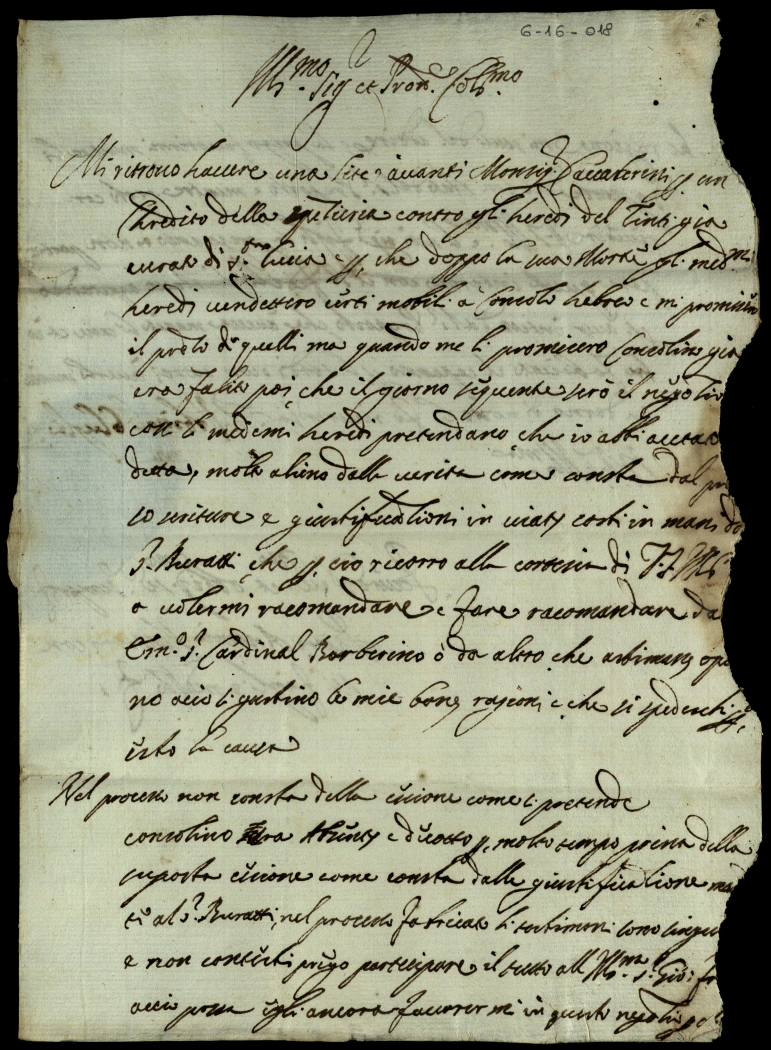 6-16-018
Ill.mo Sig.r et Pron. Col.mo
Mi ritrovo havere una lite avanti Monsig.r Vaccarini p. un
Credito della speticria contro gl. heredi del Tinti gia
curato di S.ta lucia e p. che doppo la sua Morte gl. med.mi
heredi vendettero certi mobili à Consolo hebreo e mi promi
il prdo di quelli ma quando me li promicero Consolino gia
era falito poi che il giorno sequente serò il negotio
con li medemi heredi pretendano che io abbi acetat
detta, molto alieno dalla verita come consta dal pr
so scriture e giustificationi in viaty costi in mani d
S.r Buratti che p. cio ricorro alla cortesia di V.S. Ill
a volermi racomandare e fare racomandare da
Em.o S.r Cardinal Barberino ò da altro che
no acio si gustino le mie bone ragioni e che si spedischi p.
esto la causa
Nel processo non consta della cicione come si pretende
consolino era e decotto p. molto tempo prima della
suposta cicione come consta dalle giustificatione ma
te al S.r Buratti, nel processo fabricato li testimoni sono singu
e non contesti prego participare il tutto all Ill.mo S. Gio:
accio possa egli ancora favorermi in questo negotio